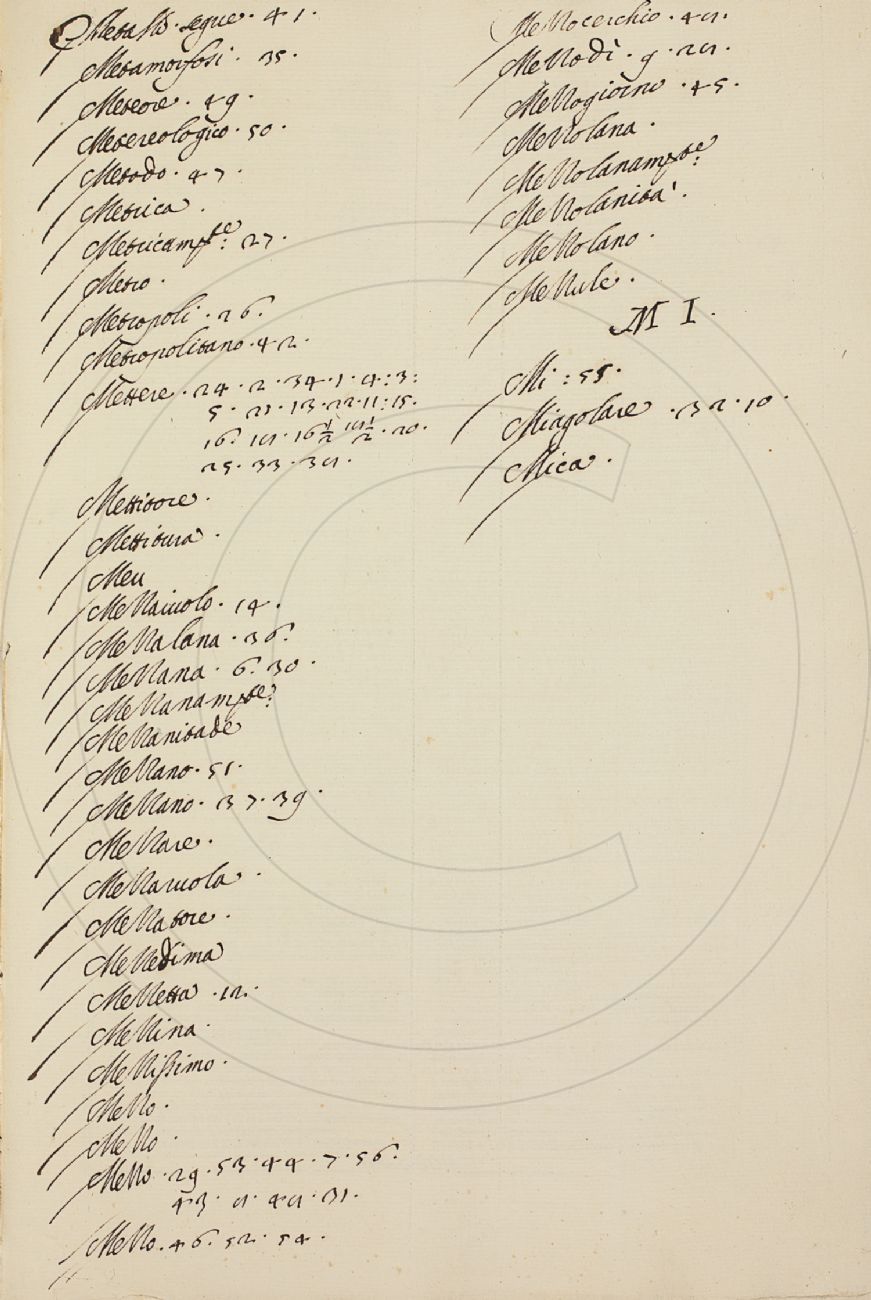 Meta SS. segue. 41.
Metamorfosi. 35.
Meteore. 49.
Metereologico. 50.
Metodo. 47.
Metrica.
Metricamte: 27.
Metro.
Metropoli. 26.
Metropolitano. 42.
Mettere. 24. 2. 34. 1. 4: 3:
5. 21. 13. 22. 11: 15.
16. 18. 16½ 18½. 20.
25. 33. 38.
Mettitore.
Mettitura.
Meu
Mezzaiuolo. 14.
Mezzalana. 36.
Mezzana. 6. 30.
Mezzanamte:
Mezzanitade
Mezzano. 51.
Mezzano. 37. 39.
Mezzare.
Mezzaruola.
Mezzatore.
Mezzedima
Mezzetta. 12.
Mezzina.
Mezzissimo.
Mezzo.
Mezzo.
Mezzo. 29. 53. 44. 7. 56.
43. 8. 48. 31.
Mezzo. 46. 52. 54.
Mezzocerchio. 48.
Mezzodì. 9. 28.
Mezzogiorno. 45.
Mezzolana.
Mezzolanamte:
Mezzolanità.
Mezzolano.
Mezzule.
M I.
Mi: 55.
Miagolare. 32. 10.
Mica.